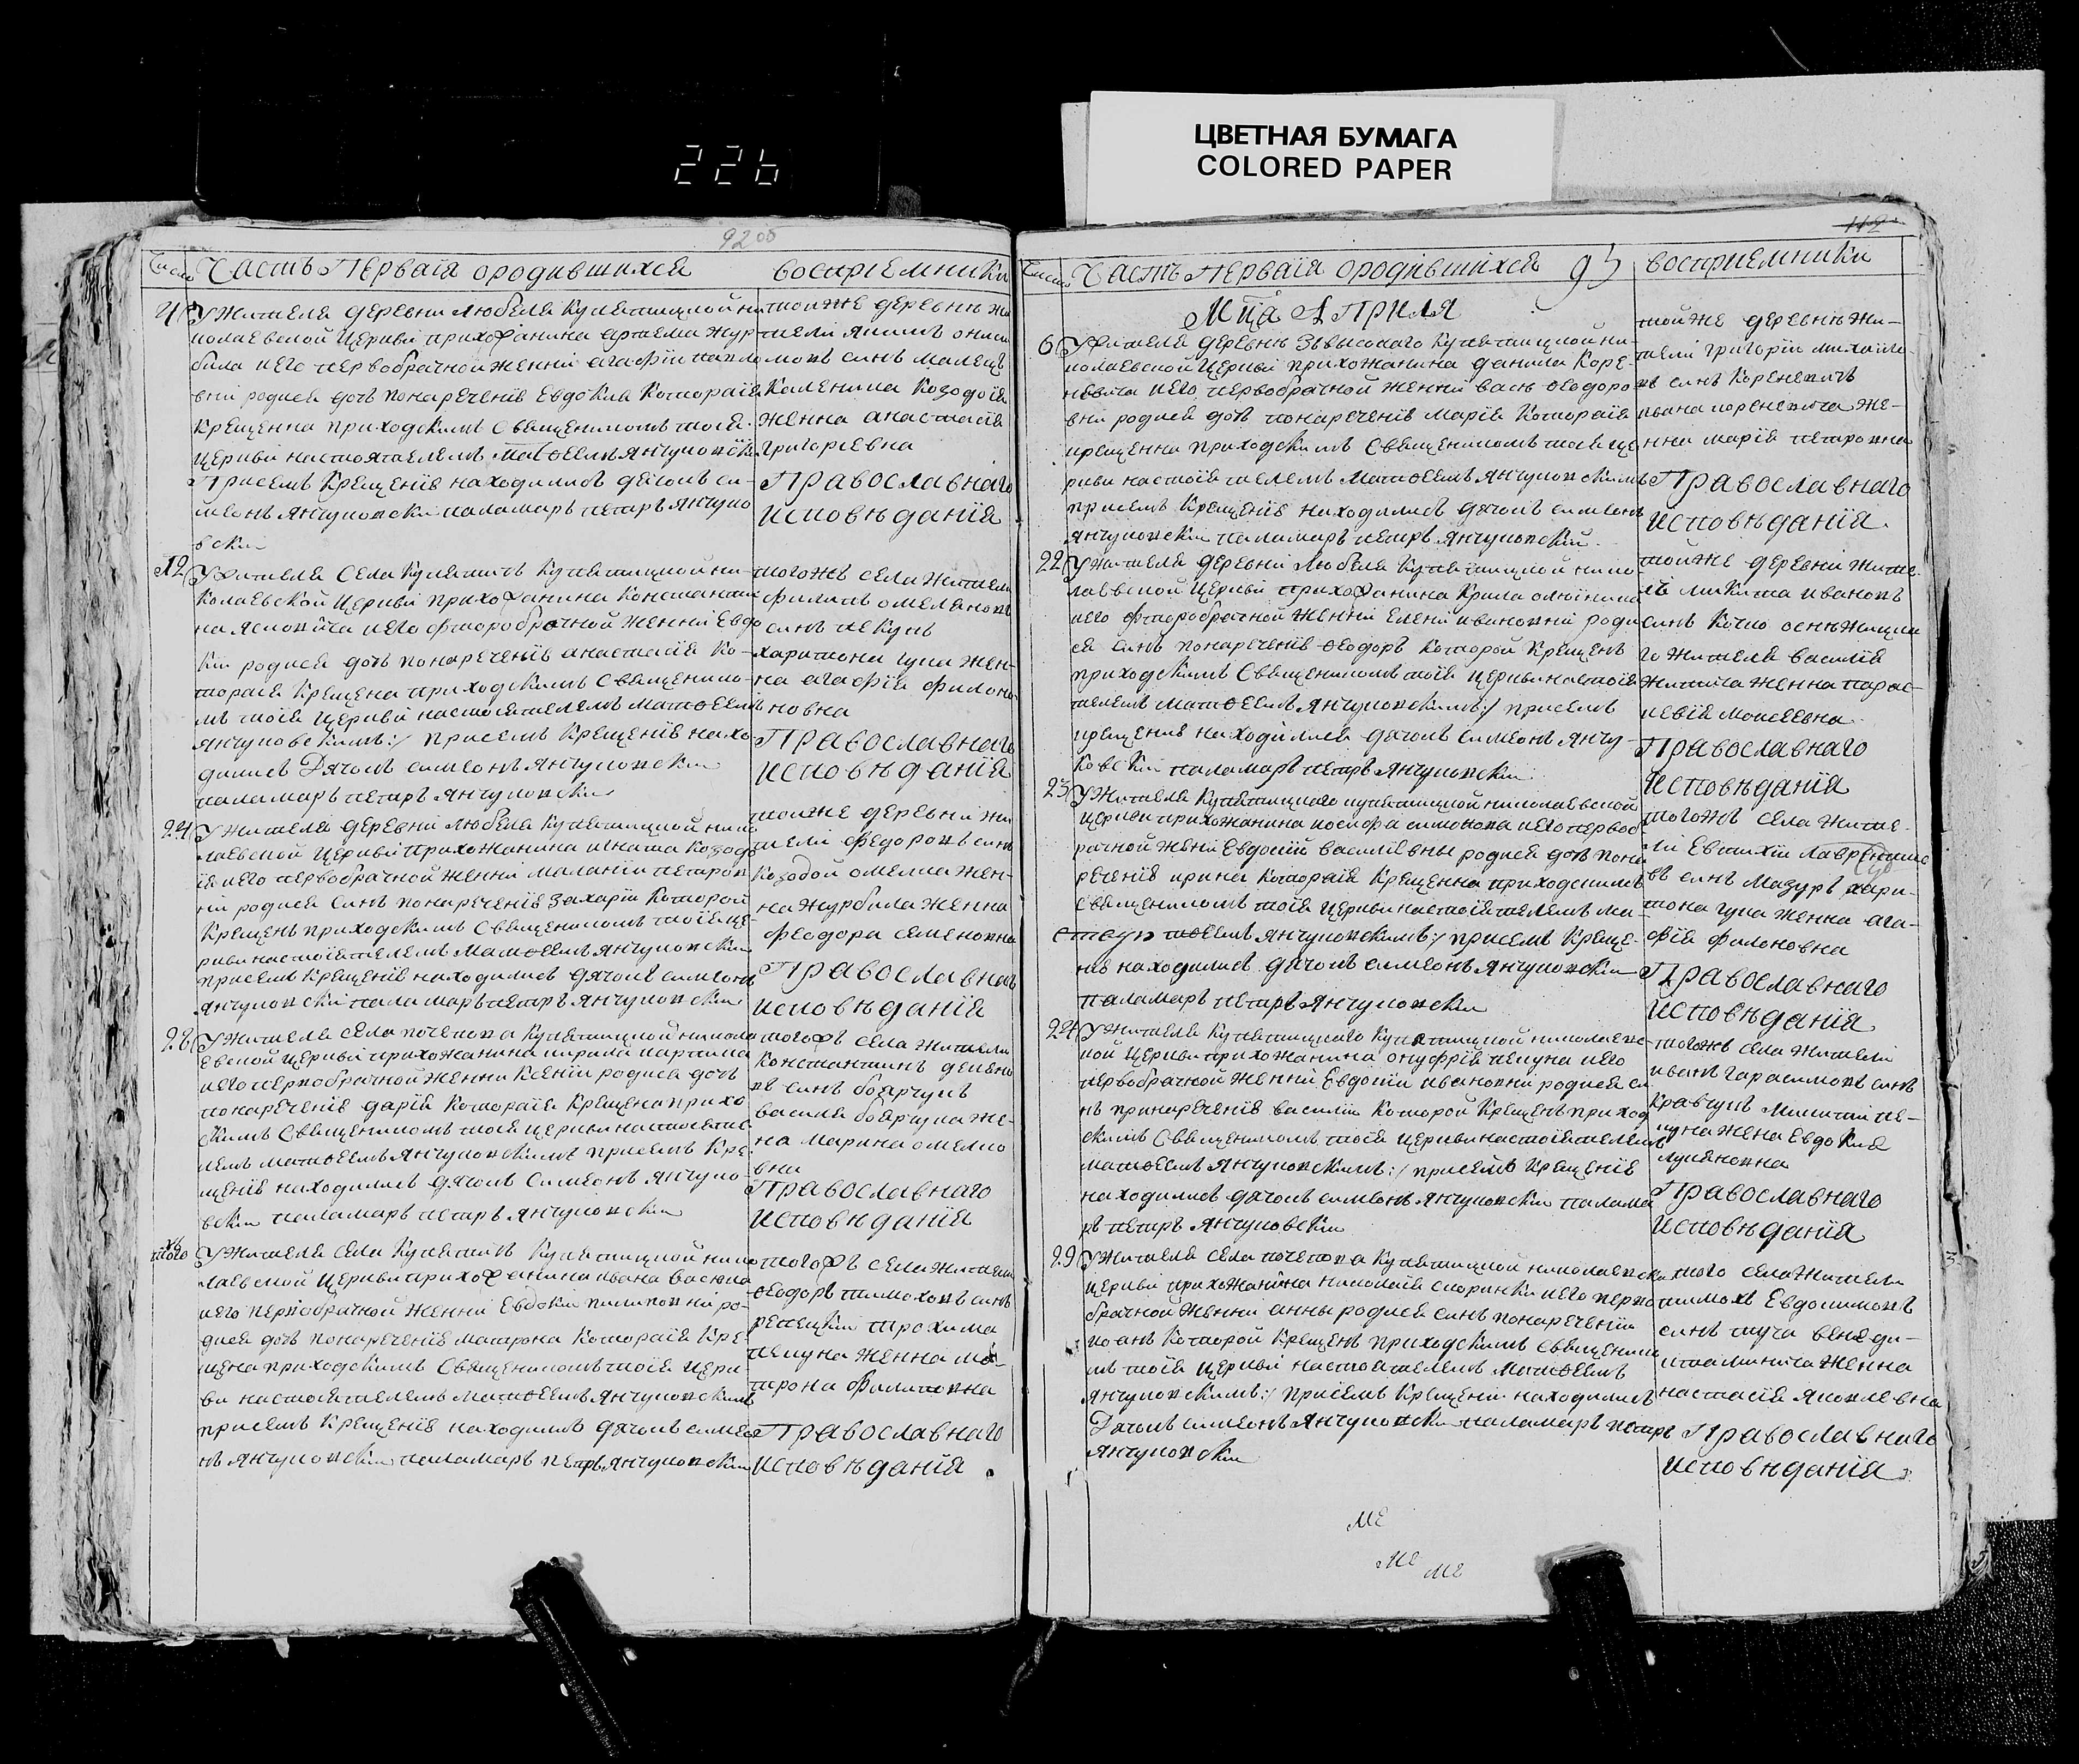 226
ЦВЕТНАЯ БУМАГА
COLORED PAPER
92 об
Число Часть Перваiя ородившихся воспрiемники
4 У Жителя деревни Любеля Купятицкой ни
колаевской церкви прихожанина артема жур
била иего первобрачной женнi агафiи павло
внi родися дочъ понареченiе Евдокия Котораiя
крещенна приходскимъ Священикомъ тоея
церкви настоятелемъ Матфеемъ Янчуковски
Присемъ Крещенiе находились дячокъ си-
меонъ Янчуковски паламаръ петръ Янчуко
вски
тойже деревнѣ жи
Каленика Козодоiя
женна анастасiя
григорiевна
Православнаго
исповѣданiя
12 У жителя села Купятичъ Купятицкой ни-
колаевской церкви прихожанина Константи
на иего второбрачной женнi Евдо
кiи родися дочъ понареченiе анастасiя ко-
тораiя крещена приходскимъ Священико-
мъ тоiя церкви настоятелемъ матфеемъ
Янчуковскимъ:/ присемъ крещенiе нахо
дились Дячокъ симеонъ Янчуковски
паламаръ петръ Янчуковски
тогожъ села жители
харитона гука жен-
на агафiя филоно
новна
Православнаго
исповѣданiя
24 У жителя деревнi Любеля Купятицкой нико
лаевской церкви прихожанина игната Козодо
iя иего первобрачной женнi маланiи петров
нi родися синъ понареченiе Захарiи которой
крещенъ приходскимъ Священикомъ тоiя це-
ркви настоiятелемъ Матфеемъ Янчуковски
присемъ крещенiе находились дячокъ симеонъ
Янчуковски паламаръ петръ Янчуковски
тойже деревнi жи
тели федоровъ синъ
Козодой омелка жен-
на журбила женна
феодора семеновна
Православнаго
исповѣданiя
28 У жителя села почепова Купятицкой никола
евской церкви прихожанина
иего первобрачной женни Ксенiи родися дочъ
понареченiе дарiя Котораiя крещена прихо
скимъ Священикомъ тоея церкви настояте
лемъ матфеемъ Янчуковскимъ присемъ кре-
щенiе находились дячокъ Симеонъ Янчуко-
вски паламаръ петръ Янчуковски
тогожъ села жители
Константинъ демено
въ синъ боярчукъ
василя боярчука же-
на марина омелко
вна
Православнаго
исповѣданiя
того жъ У жителя села Купятичъ Купятицкой нико
лаевской церкви прихожанина ивана васюка
иего первобрачной женни Евдокiи пилиповнi ро-
дися дочъ понареченiе матрона Котораiя кре-
щена приходскимъ Священикомъ тоiя церк
ви настоятелемъ матфеемъ Янчуковскимъ
присемъ крещенiе находились дячокъ симео
нъ Янчуковски паламаръ петръ Янчуковски
тогожъ села жители
феодоръ тимоховъ синъ
репецки трохима
пекуна женна ма-
трона филиповна
Православнаго
исповѣданiя
112
Число Часть Перваiя ородившихся 93 воспрiемники
Мца Априля
6 У жителя деревнѣ Завысокаго Купятицкой ни-
колаевской церкви прихожанина данила Коре-
невича иего первобрачной женни васы феодоро
внi родися дочъ понареченiе марiя Котораiя
крещенна приходскимъ Священикомъ тоея це
ркви настоiятелемъ матфеемъ Янчуковскимъ
присемъ крещенiе находились дячокъ симеонъ
Янчуковски паламаръ петръ Янчуковский
тойже деревнѣ жи-
тели григорiи михайло
въ синъ Кореневичъ
ивана кореневича же-
нна марiя петровна
Православнаго
исповѣданiя.
22 У жителя деревнi Любеля Купятицкой нико
лаевской церкви прихожанина Крила
иего второбрачной женни Еленi ивановнi роди
ся синъ понареченiе феодоръ которой крещенъ
приходскимъ Священикомъ тоiя церкви настоiя
телемъ матфеемъ Янчуковскимъ:/ присемъ
крещенiе находились дячокъ симеонъ Янчу-
ковски паламаръ петръ Янчуковски
тойже деревнi жите-
лѣ микита ивановъ
го жителя василiя
женна парас-
кевiя моисеевна
Православнаго
исповѣданiя
23 У жителя Купятицкаго купятицкой николаевской
церкви прихожанина иосифа симонова иего первоб
рачной женi Евдокiи василiевны родися дочъ пона
реченiе ирина Котораiя крещенна приходскимъ
Священикомъ тоiя церкви настоiятелемъ ма-
тфеемъ Янчуковскимъ:/ присемъ креще-
нiе находились дячокъ симеонъ Янчуковски
паламаръ петръ Янчуковски
тогожъ села жите-
ли Евтихiи Лаврентие
въ синъ Мазуръ хари-
тона гука женна ага-
фiя филоновна
Православнаго
исповѣданiя
24 У жителя Купятицкаго Купятицкой николаевс
кой церкви прихожанина онуфрiя пекуна иего
первобрачной женнi Евдокiи ивановнi родися си
нъ принареченiе василiи которой крещенъ приход
скимъ Священикомъ тоiя церкви настоiятелемъ
матфеемъ Янчуковскимъ:/ присемъ крещенiе
находились дячокъ симеонъ Янчуковски палама
ръ петръ Янчуковски
тогожъ села жители
иванъ гарасимовъ синъ
Кравчукъ
куна жена Евдокия
лукяновна
Православнаго
исповѣданiя
29 У жителя села почепова Купятицкой николаевско
церкви прихожанина николаiя иего перво
брачной женни анны родися синъ понареченiи
иоанъ которой крещенъ приходскимъ Священико
мъ тоiя церкви настоятелемъ матфеемъ
Янчуковскимъ:/ присемъ крещенiи находились
Дячокъ симеонъ Янчуковски паламаръ петръ
Янчуковски
того села жители
тимохъ Евдокимовъ
синъ венеди-
женна
настасiя яковлевна
Православнаго
исповѣданiя
ме
ме ме